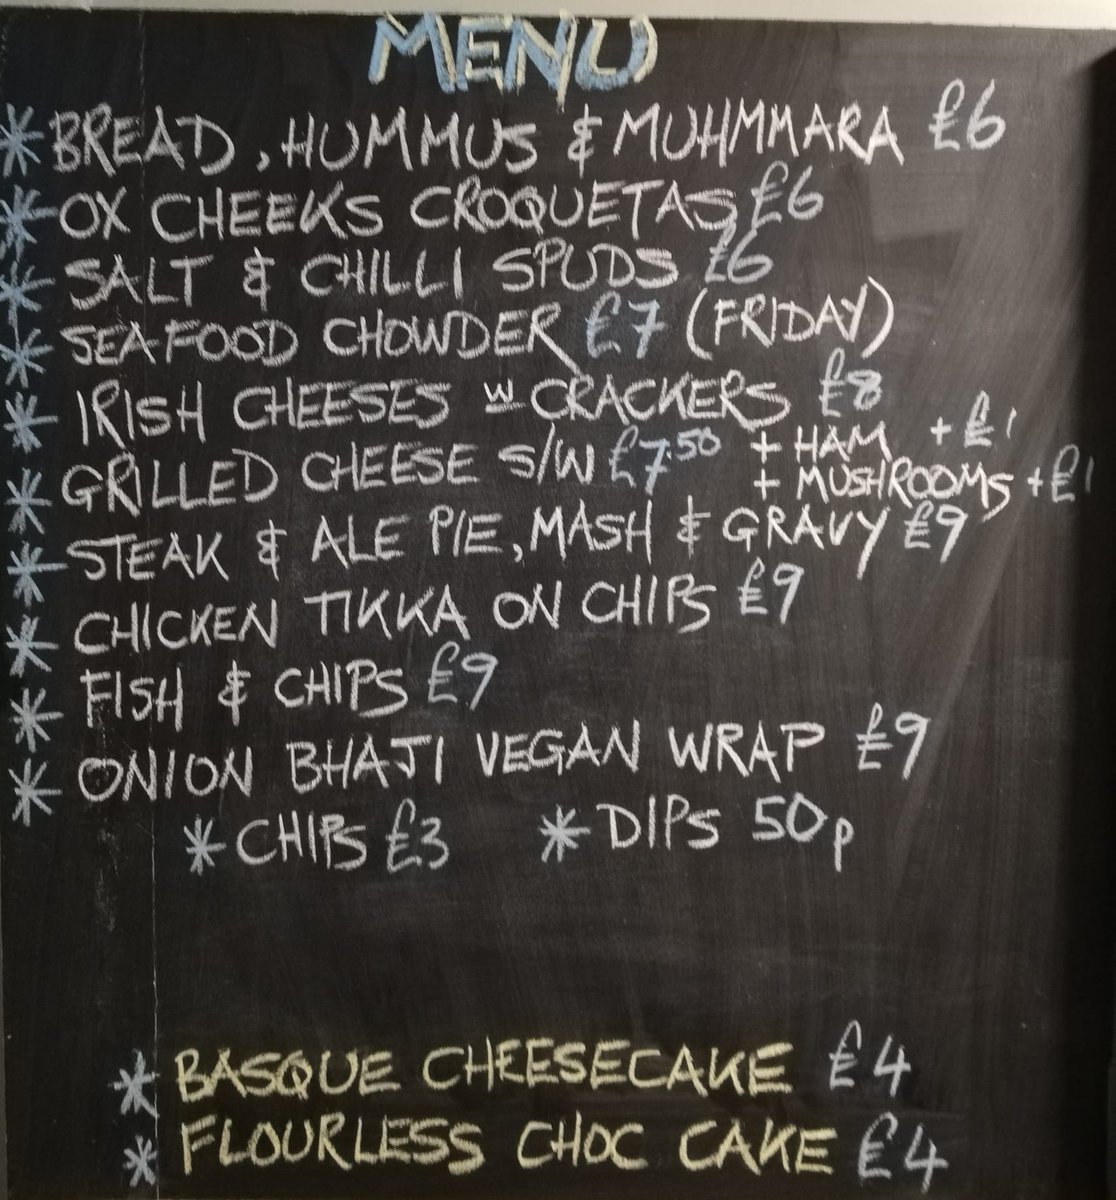 MENU
* BREAD, HUMMUS & MUHMMARA £6
* OX CHEEKS CROQUETAS £6
* SALT & CHILLI SPUDS £6
* SEAFOOD CHOWDER £7 (FRIDAY)
* IRISH CHEESES w CRACKERS £8
* GRILLED CHEESE S/W £7.50 + HAM + £1
+ MUSHROOMS + £1
* STEAK & ALE PIE, MASH & GRAVY £9
* CHICKEN TIKKA ON CHIPS £9
* FISH & CHIPS £9
* ONION BHAJI VEGAN WRAP £9
* CHIPS £3 * DIPS 50p
* BASQUE CHEESECAKE £4
* FLOURLESS CHOC CAKE £4